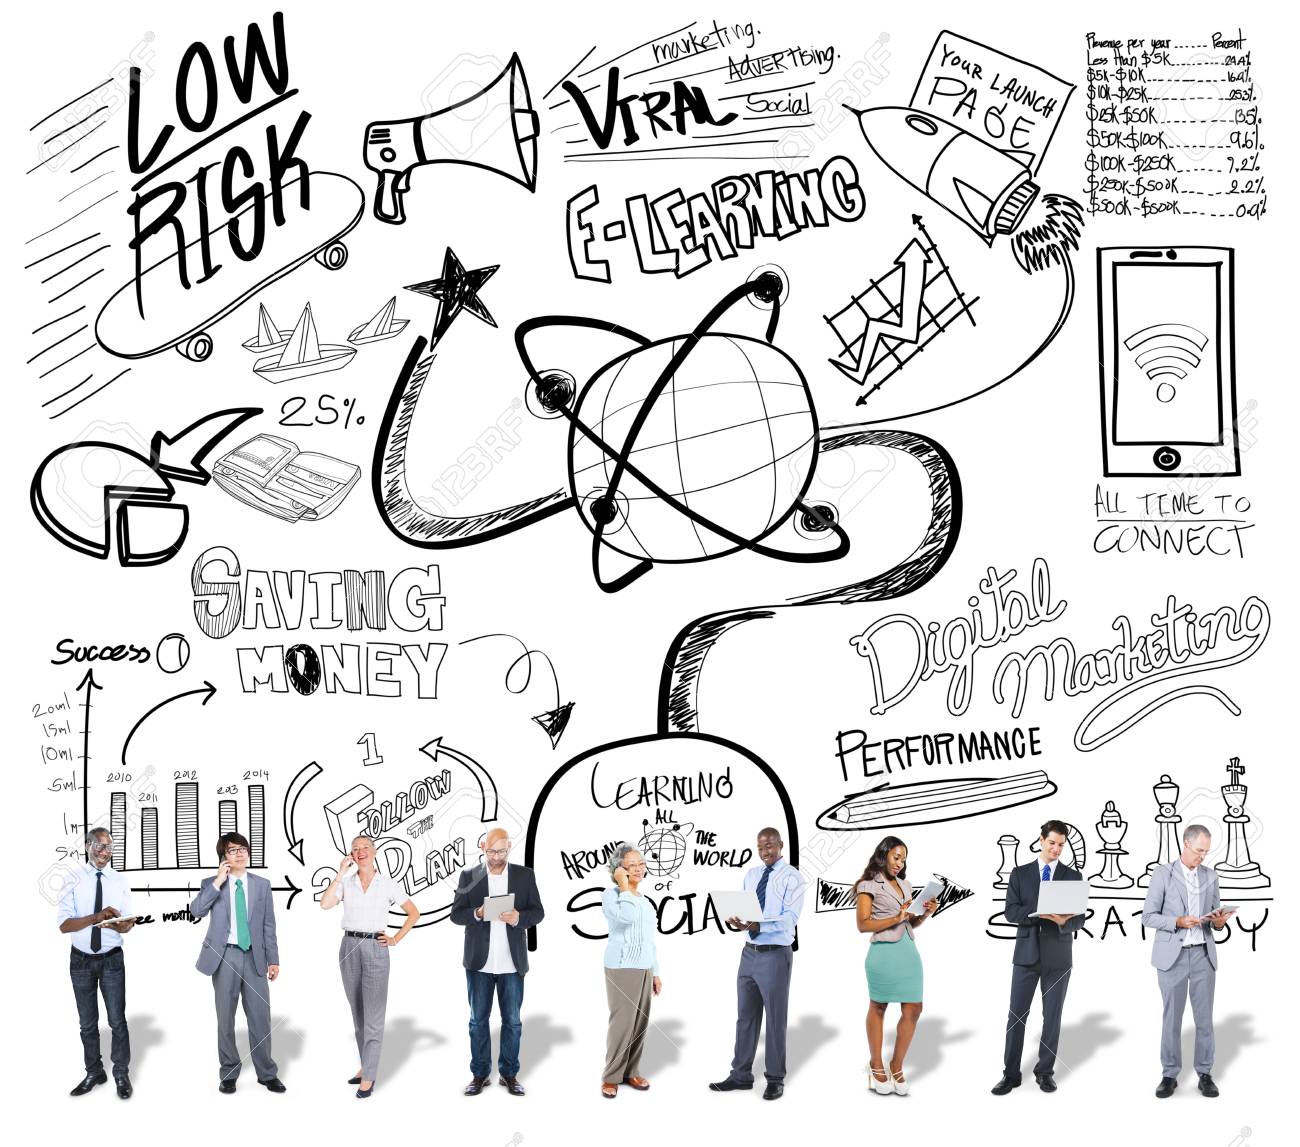 LOW
RISK
marketing.
ADVERTISING.
VIRAL
Social
E-LEARNING
YOUR LAUNCH
PAGE
Revenue per year ...... Percent
Less than $5k
$5K-$10K
$10K-$25K
$25K-$50K
$50K-$100K 9.6%
$100K-$250K 7.2%
$250K-$500K 2.2%
$500K-$500K 0.9%
25%
ALL TIME TO
CONNECT
SAVING
MONEY
Success
20ml
15ml
10ml
5ml
1m
5m
2010
2011
2012
2013
2014
1
FOLLOW
THE
PLAN
2
LEARNING
ALL
AROUND THE WORLD
of
SOCIA
Digital
Marketing
PERFORMANCE
STRATEGY
123RF